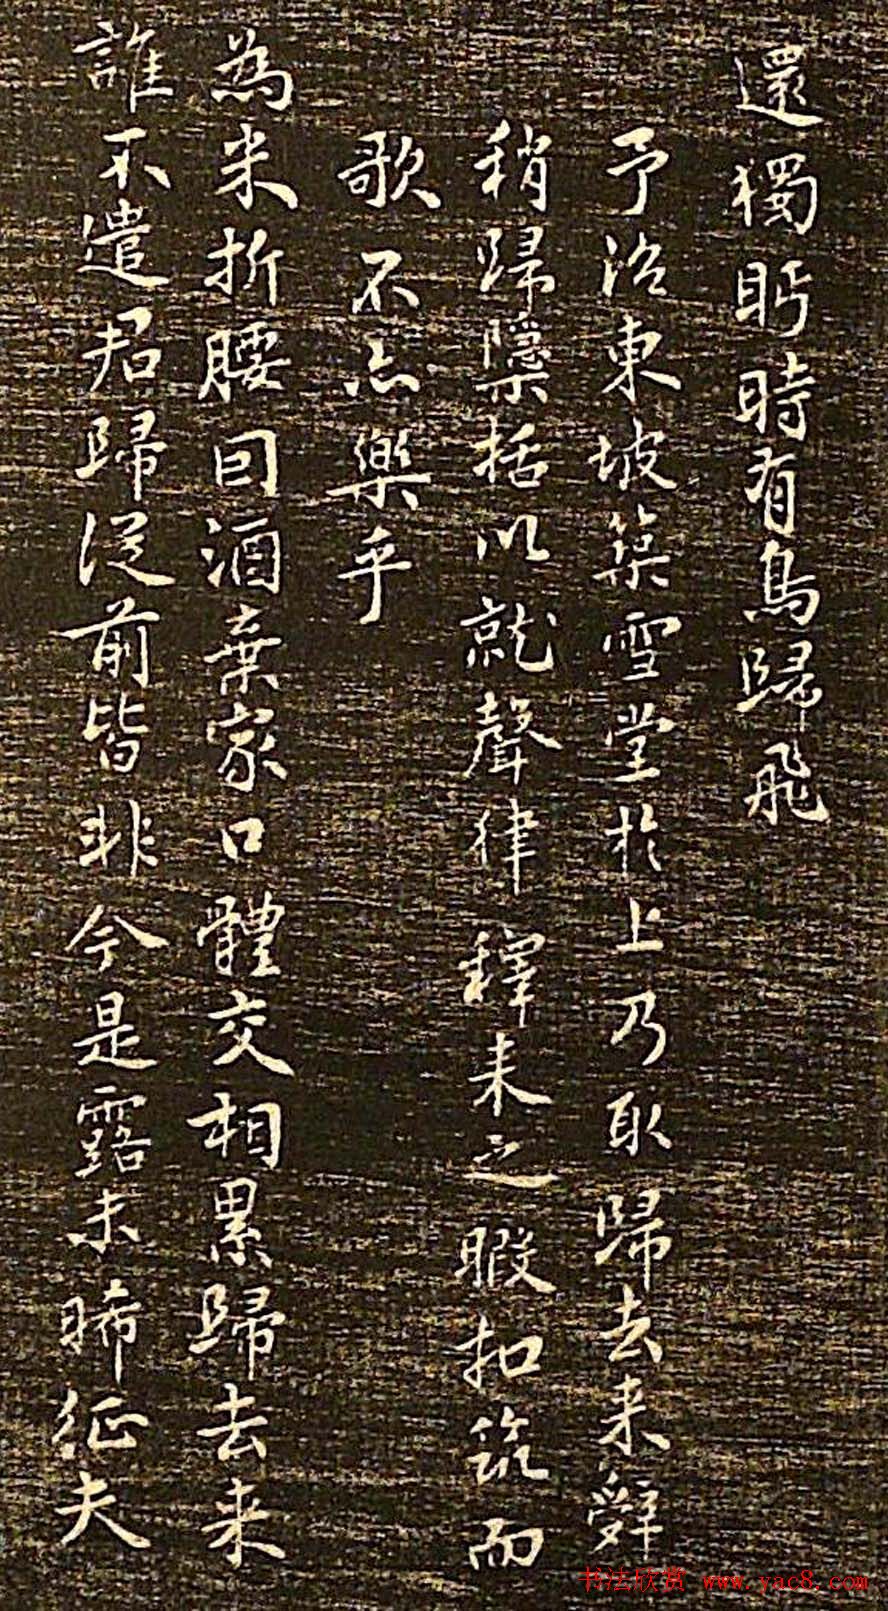 還獨眄時有鳥歸飛
予治東坡築雪堂於上乃取歸去来辭
稍歸檃括以就聲律釋耒之暇扣筑而
歌不亦樂乎
為米折腰因酒棄家口體交相累歸去来
誰不遣君歸從前皆非今是露未晞征夫
书法欣赏 www.yac8.com